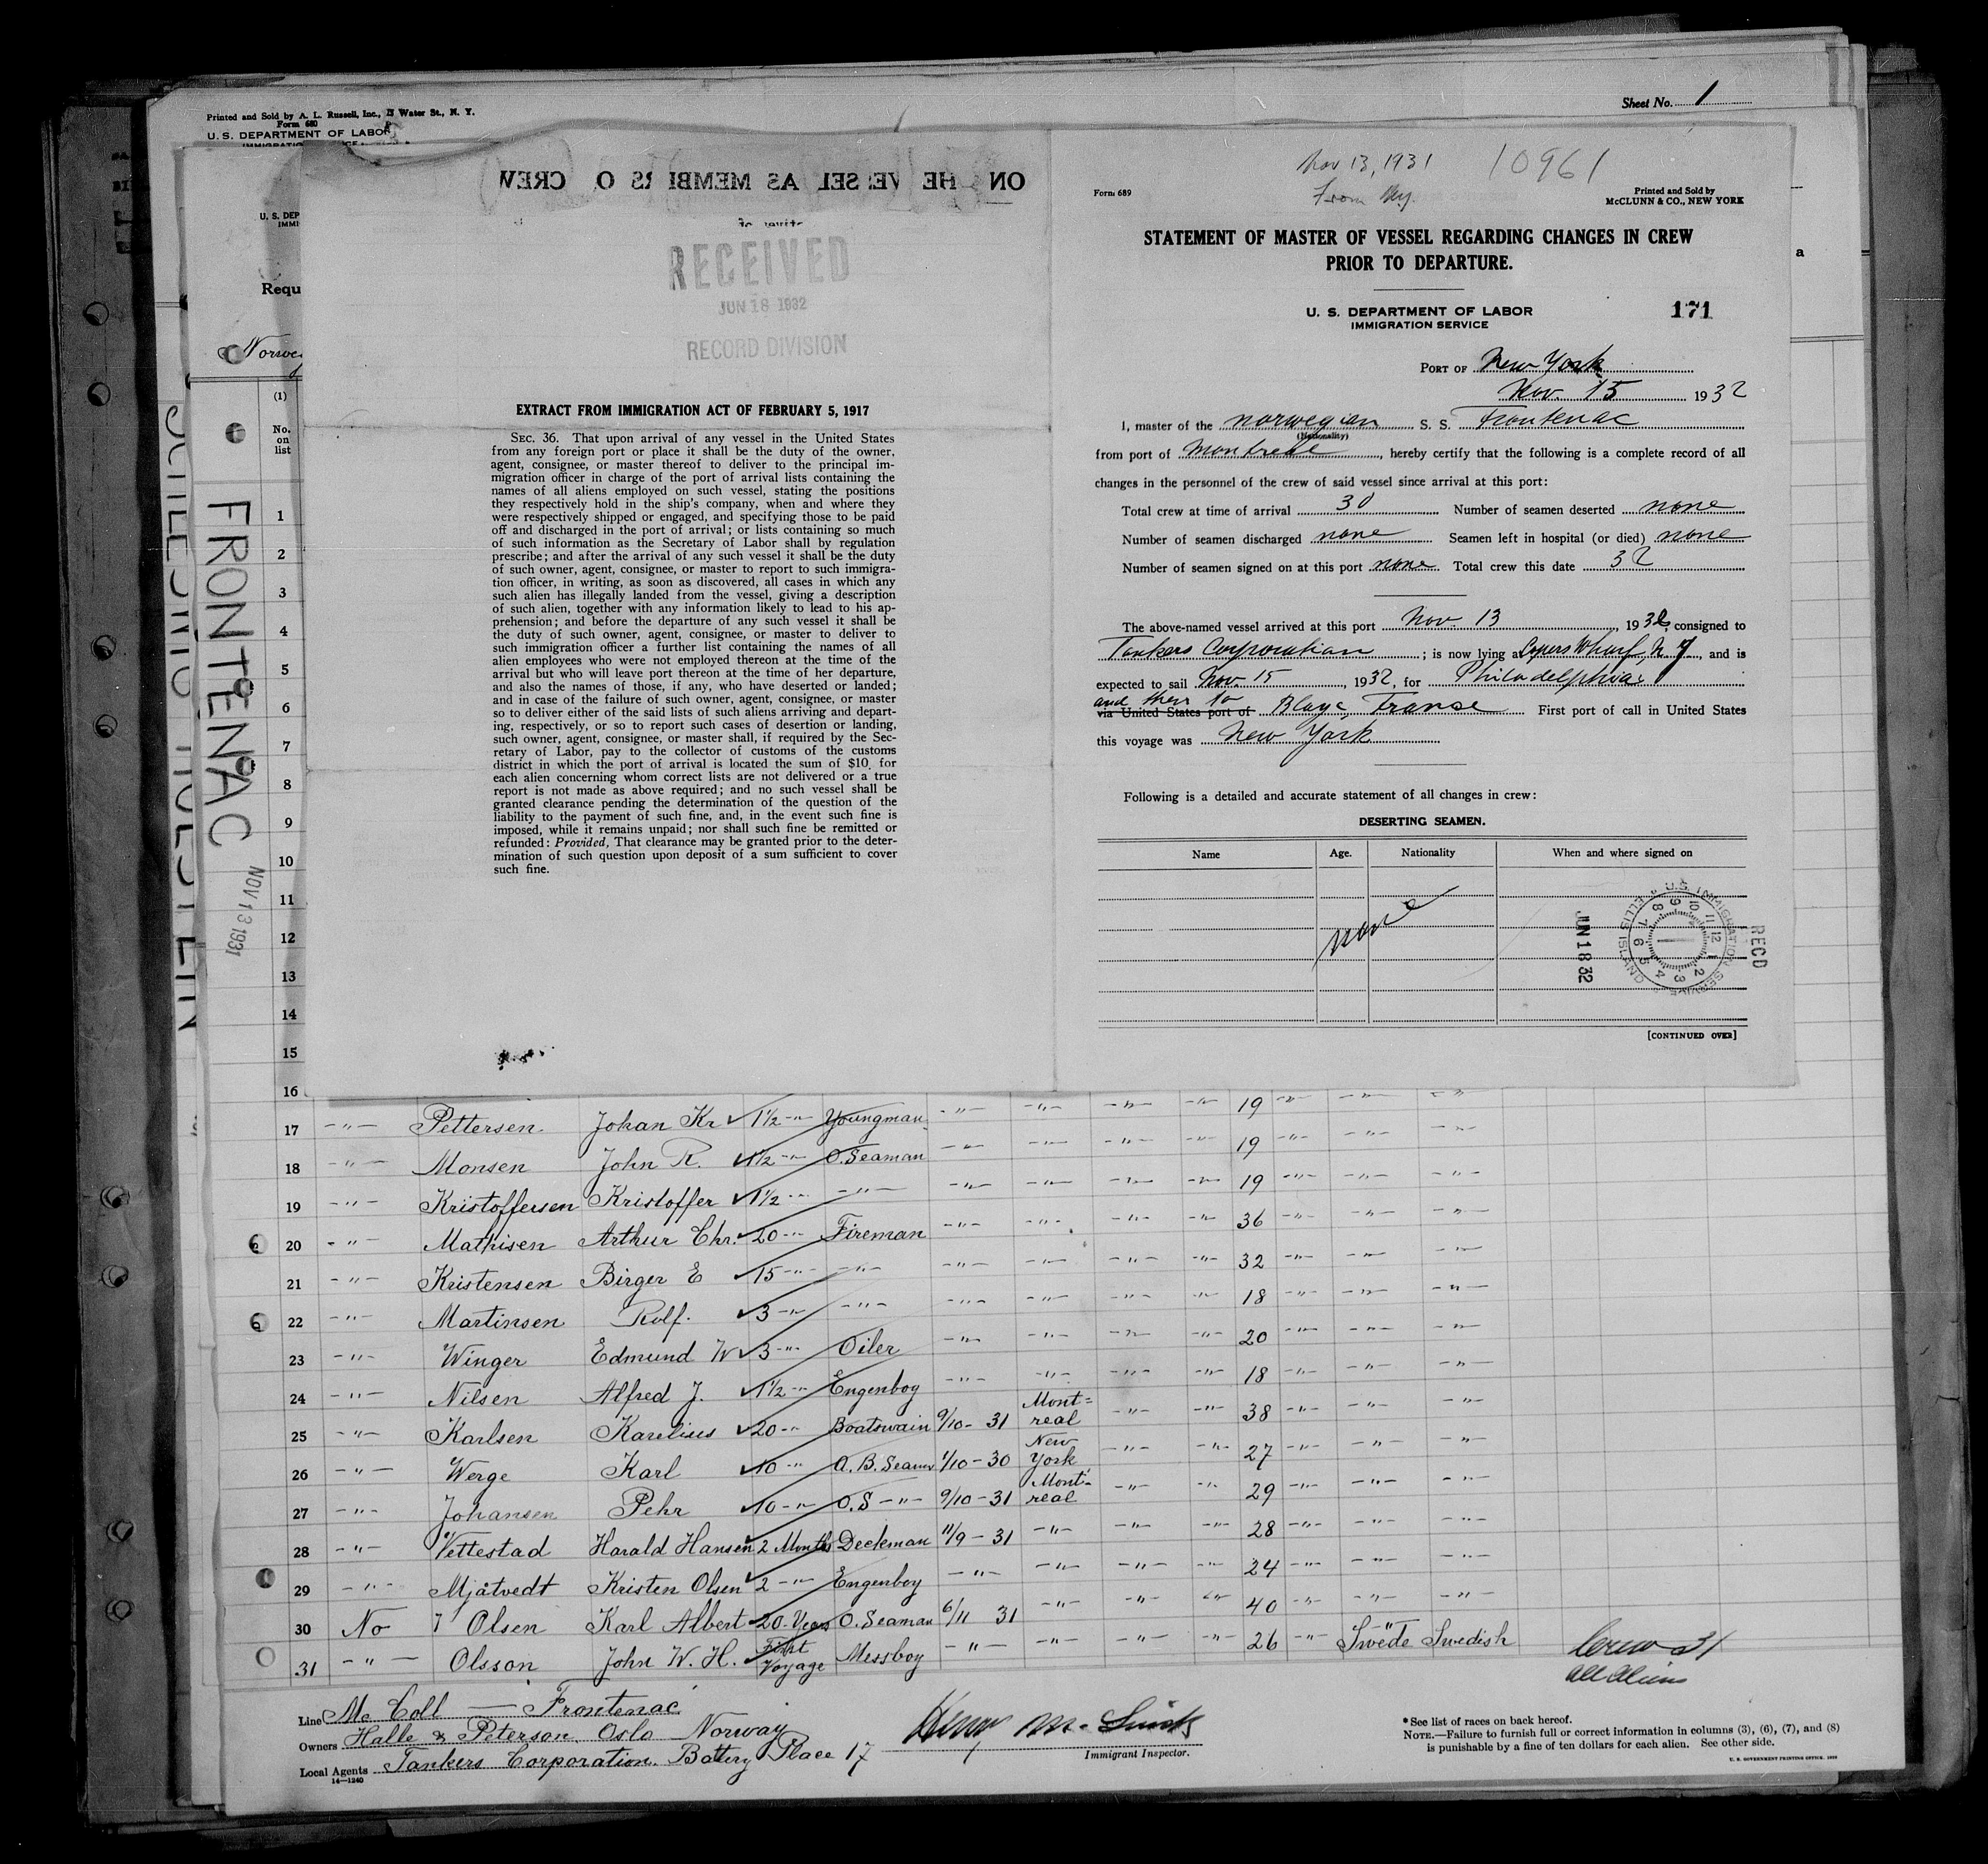 Sheet No. 1
Printed and Sold by A. L. Russell, Inc., Water St., N. Y.
Form 680
U. S. DEPARTMENT OF LABOR
U. S. DEP
IMMI
Requ
Norwe
(1)
No.
on
list
FRONTENAC
NOV 13 1931
1
2
3
4
5
6
7
8
9
10
11
12
13
14
15
16
RECEIVED
JUN 18 1932
RECORD DIVISION
EXTRACT FROM IMMIGRATION ACT OF FEBRUARY 5, 1917
SEC. 36. That upon arrival of any vessel in the United States
from any foreign port or place it shall be the duty of the owner,
agent, consignee, or master thereof to deliver to the principal im-
migration officer in charge of the port of arrival lists containing the
names of all aliens employed on such vessel, stating the positions
they respectively hold in the ship's company, when and where they
were respectively shipped or engaged, and specifying those to be paid
off and discharged in the port of arrival; or lists containing so much
of such information as the Secretary of Labor shall by regulation
prescribe; and after the arrival of any such vessel it shall be the duty
of such owner, agent, consignee, or master to report to such immigra-
tion officer, in writing, as soon as discovered, all cases in which any
such alien has illegally landed from the vessel, giving a description
of such alien, together with any information likely to lead to his ap-
prehension; and before the departure of any such vessel it shall be
the duty of such owner, agent, consignee, or master to deliver to
such immigration officer a further list containing the names of all
alien employees who were not employed thereon at the time of the
arrival but who will leave port thereon at the time of her departure,
and also the names of those, if any, who have deserted or landed;
and in case of the failure of such owner, agent, consignee, or master
so to deliver either of the said lists of such aliens arriving and depart-
ing, respectively, or so to report such cases of desertion or landing,
such owner, agent, consignee, or master shall, if required by the Sec-
retary of Labor, pay to the collector of customs of the customs
district in which the port of arrival is located the sum of $10 for
each alien concerning whom correct lists are not delivered or a true
report is not made as above required; and no such vessel shall be
granted clearance pending the determination of the question of the
liability to the payment of such fine, and, in the event such fine is
imposed, while it remains unpaid; nor shall such fine be remitted or
refunded: Provided, That clearance may be granted prior to the deter-
mination of such question upon deposit of a sum sufficient to cover
such fine.
Nov 13, 1931 10961
From
Form 689
Printed and Sold by
McCLUNN & CO., NEW YORK
STATEMENT OF MASTER OF VESSEL REGARDING CHANGES IN CREW
PRIOR TO DEPARTURE.
U. S. DEPARTMENT OF LABOR 171
IMMIGRATION SERVICE
PORT OF New York
Nov. 15 1932
I, master of the norwegian S. S. Frontenac
(Nationality)
from port of Montreal, hereby certify that the following is a complete record of all
changes in the personnel of the crew of said vessel since arrival at this port:
Total crew at time of arrival 30 Number of seamen deserted none
Number of seamen discharged none Seamen left in hospital (or died) none
Number of seamen signed on at this port none Total crew this date 32
The above-named vessel arrived at this port Nov. 13, 193 consigned to
Tankers Corporation; is now lying at Wharf N. J., and is
expected to sail Nov. 15, 1932, for Philadelphia
and then to
via United States port of Blaye, Franse First port of call in United States
this voyage was New York
Following is a detailed and accurate statement of all changes in crew:
DESERTING SEAMEN.
Name Age. Nationality When and where signed on
none
RECD
U.S. IMMIGRATION SERVICE ELLIS ISLAND
JUN 18 32
[CONTINUED OVER]
17 -"- Pettersen Johan Kr 1½ -"- Youngman -"- -"- -"- -"- 19 -"- -"- -"-
18 -"- Monsen John R. 1½ -"- O. Seaman -"- -"- -"- -"- 19 -"- -"- -"-
19 -"- Kristoffersen Kristoffer 1½ -"- -"- -"- -"- -"- -"- 19 -"- -"- -"-
20 -"- Mathisen Arthur Chr. 20 -"- Fireman -"- -"- -"- -"- 36 -"- -"- -"-
21 -"- Kristensen Birger E 15 -"- -"- -"- -"- -"- -"- 32 -"- -"- -"-
22 -"- Martinsen Rolf. 3 -"- -"- -"- -"- -"- -"- 18 -"- -"- -"-
23 -"- Winger Edmund W 3 -"- Oiler -"- -"- -"- -"- 20 -"- -"- -"-
24 -"- Nilsen Alfred J. 1½ -"- Engenboy -"- -"- -"- -"- 18 -"- -"- -"-
25 -"- Karlsen Karelius 20 -"- Boatswain 9/10-31 Mont=real -"- -"- 38 -"- -"- -"-
26 -"- Werge Karl 10 -"- A. B. Seamn 1/10-30 New York -"- -"- 27 -"- -"- -"-
27 -"- Johansen Pehr 10 -"- O.S -"- 9/10-31 Mont-real -"- -"- 29 -"- -"- -"-
28 -"- Vettestad Harald Hansen 2 Months Deckman 11/9-31 -"- -"- -"- 28 -"- -"- -"-
29 -"- Mjåtvedt Kristen Olsen 2 -"- Engenboy -"- -"- -"- -"- 24 -"- -"- -"-
30 No 7 Olsen Karl Albert 20 Years O. Seaman 6/11 31 -"- -"- -"- 40 -"- -"- -"-
31 -"- Olsson John W. H. First Voyage Messboy -"- -"- -"- -"- 26 -"- Swede Swedish
Crew 31
All Aliens
Line Mc Coll — Frontenac
Owners Halle & Peterson. Oslo Norway
Local Agents Tankers Corporation. Battery Place 17
14—1240
Immigrant Inspector.
* See list of races on back hereof.
NOTE.—Failure to furnish full or correct information in columns (3), (6), (7), and (8)
is punishable by a fine of ten dollars for each alien. See other side.